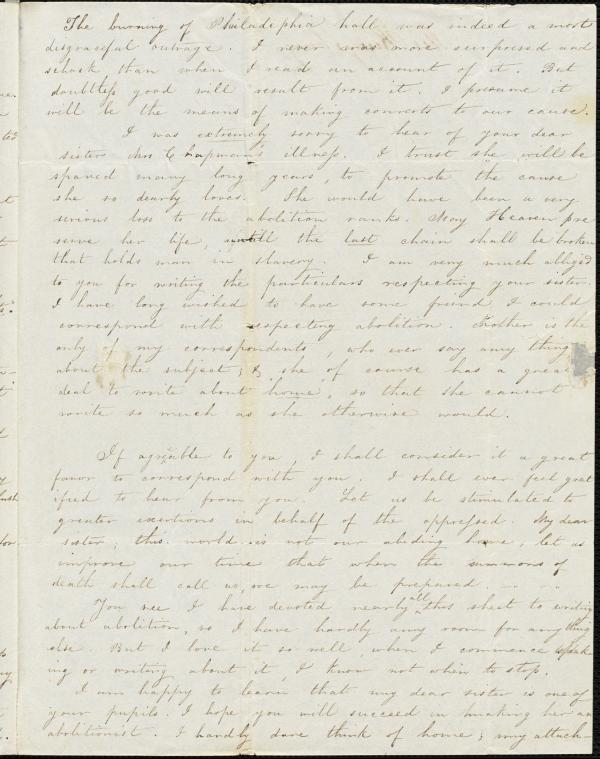 The burning of Philadelphia hall was indeed a most
disgraceful outrage. I never was more surprised and
schock than when I read an account of it. But
doubtless good will result from it. I presume it
will be the means of making converts to our cause.
I was extremely sorry to hear of your dear
sister Mrs Chapman's illness. I trust she will be
spared many long years, to promote the cause
she so dearly loves. She would have been a very
serious loss to the abolition ranks. May Heaven pre
serve her life, untill the last chain shall be broken
that holds man in slavery. I am very much obliged
to you for writing the particulars respecting your sister.
I have long wished to have some friend I could
correspond with respecting abolition. Mother is the
only of my correspondents, who ever say any thing
about the subject; & she of course has a great
deal to write about home, so that she cannot
write so much as she otherwise would.
If agreable to you, I shall consider it a great
favor to correspond with you. I shall ever feel grat
ified to hear from you. Let us be stimulated to
greater exertions in behalf of the oppressed. My dear
sister, this world is not our abiding home, let us
improve our time that when the summons of
death shall call us, we may be prepared.
You see I have devoted nearly all this sheet to writing
about abolition, so I have hardly any room for any thing
else. But I love it so well, when I commence speak
ing or writing about it, I know not when to stop.
I am happy to learn that my dear sister is one of
your pupils. I hope you will succeed in making her an
abolitionist. I hardly dare think of home; my attach-